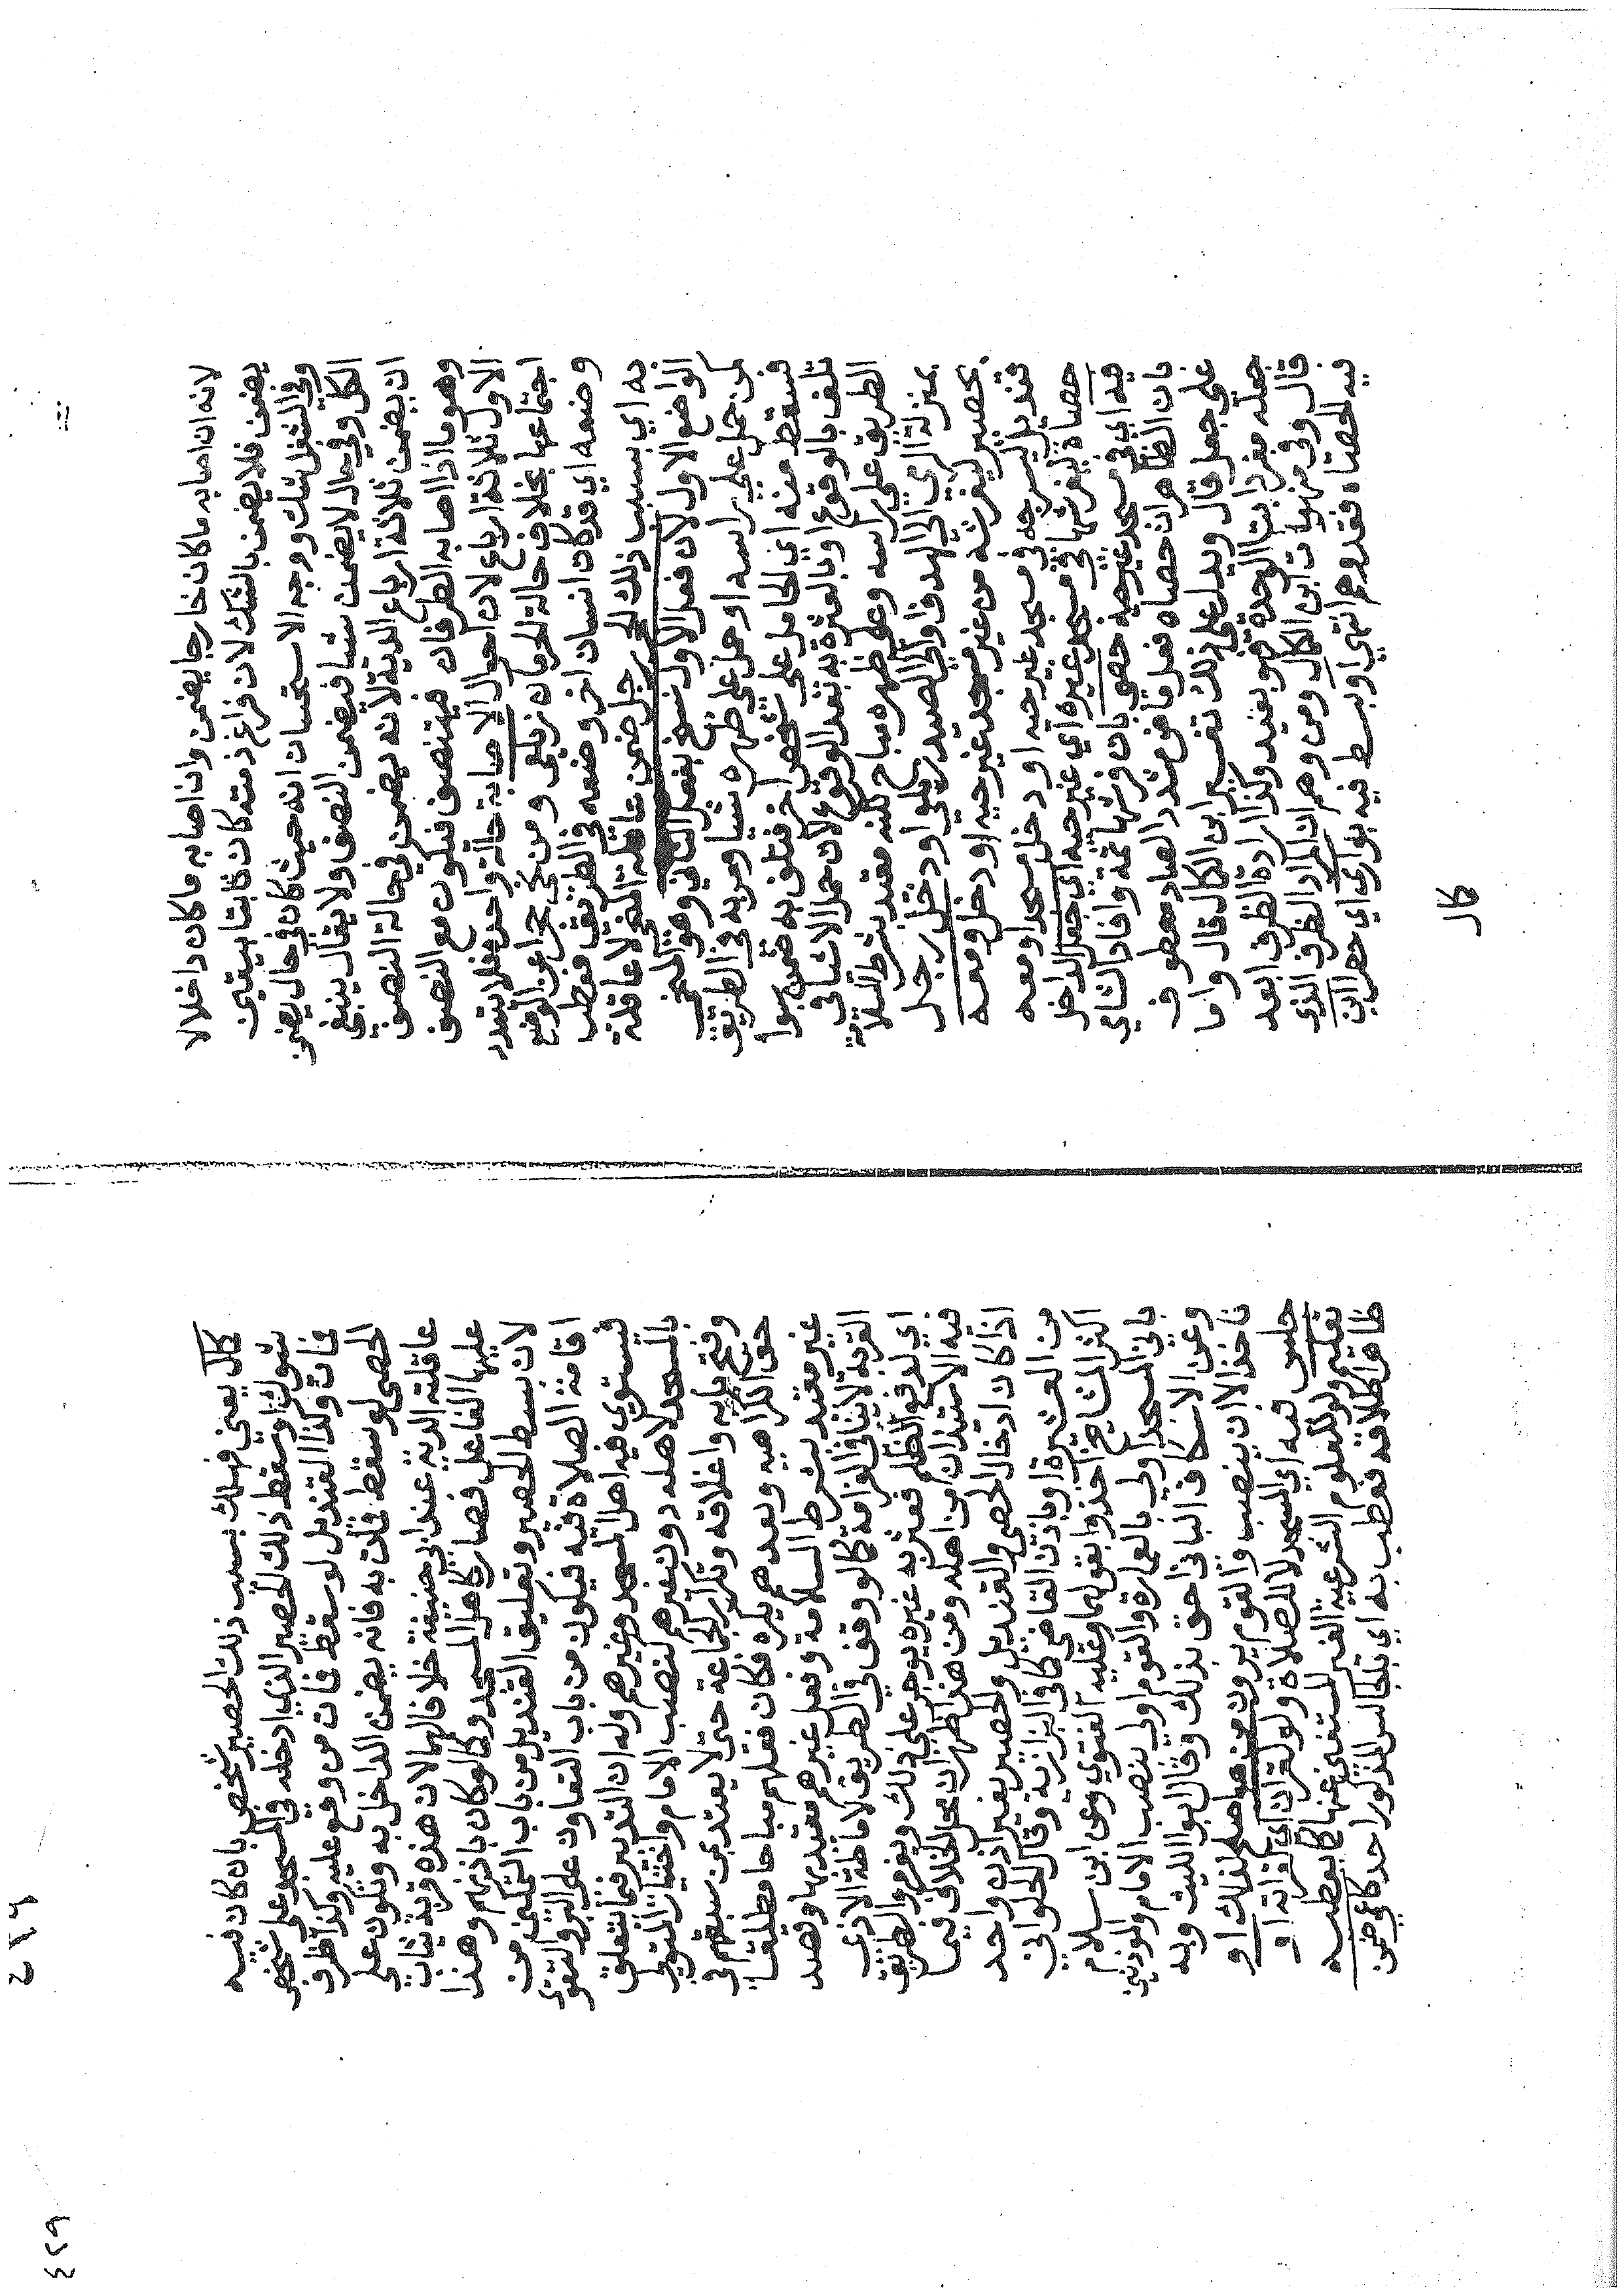 لانه ان اصابه ما كان خارجا يضمن وان اصابه ما كان داخلا لا
يضمن فلا يضمن بالشك لان فراغ ذمته كان ثابتا بيقين
وفي الشغل شك وجه الاستحسان انه حيث كان في حال يضمن
الكل وفي حال لا يضمن شيا فيضمن النصف ولا يقال ينبغي
ان يضمن ثلاثة ارباع الدية لانه يضمن في حالة النصف
وهو ما اذا اصابه الطرفان فيتنصف فيكون مع النصف
الاول ثلاثة ارباع لان احوال الاصابة حالة واحدة فلا يتعدد
اجتماعها بخلاف حالة الحرمان زيلعي ومن نحى حجرا عن الوضع
وضعه اي قد كان انسان اخر وضعه في الطريق فعطب
به اي بسبب ذلك الحجر رجل ضمن عاقلة المنحي لا عاقلة
الواضع الاول لان فعل الاول نسخ بفعل الثاني وهو المنحي
كمن حمل على راسه او حمل على ظهره شيا ومر به في الطريق
فسقط منه اي الحامل على شخص اخر فتلف به ضمن سوا
تلف بالوقوع او بالعثرة به بعد الوقوع لان حمل الاشيا في
الطريق على راسه وعلى ظهره مباح لكنه مقيد بشرط السلامة
بمنزلة الرمي الى الهدف او الى الصيد زيلعي او دخل رجل
بحصير ليفرشه من غير مسجد غير حيه او دخل ومعه
قنديل ليسرجه في مسجد غير حيه او دخل مسجدا ومعه
حصاة ليفرشها في مسجد غيره اي غير حيه اي جعل الداخل
فيه اي في مسجد غير حيه حصى بان فرشها ثمه وافاد الشاي
بان الظاهر ان حصباه فعل ماض مشدد الصاد معطوف
على جعل قال ويدل على ذلك تفسير ابن الكمال قال واما
جعله مفردا بتا الوحدة فهو بعيد وكذا ارادة الظرف ابعد
قال وفي منهوات ابن الكمال ومن وهم ان المراد الظرف الذي
فيه الحصاه فقد وهم انتهى او بسط فيه بواري اي حصرا ابن
كمال
كمال يعني فهلك بسبب ذلك الحصير شخص بان كان فيه
شوك او سقط ذلك الحصير الذي ادخله في المسجد على شخص
فمات وكذا القنديل لو سقط فمات من وقع عليه وكذا ظرف
الحصى لو سقط فتلف به فانه يضمن الداخل به وتكون على
عاقلته الدية عند ابي حنيفة خلافا لهما لان هذه قربة يثاب
عليها الفاعل فصار كاهل المسجد وكما لو كان باذنهم وهذا
لان بسط الحصير وتعليق القنديل من باب التمكين من
اقامة الصلاة فيه فيكون من باب التعاون على البر والتقوى
فيستوي فيه اهل المسجد وغيرهم وله ان التدبير فيما يتعلق
بالمسجد لاهله دون غيرهم كنصب الامام واختيار المتولي
وفتح بابه واغلاقه وتكرار الجماعة حتى لا يعتد بمن سبقهم في
حق الكراهيه وبعدهم يكره فكان فعلهم مباحا مطلقا
غير مقيد بشرط السلامة وفعل غيرهم مقيد بها وقصد
القربة لا ينافي الغرامة كما لو وقف في الطريق لاماطة الاذى
اي لدفع الظلم فعثر به غيره يوجر على ذلك ويغرم والطريق
فيه الاستيذان من اهله ومن هذا ظهر ان محل الخلاف فيما
اذا كان ادخال الحصى والقنديل والحصير بغير اذن واحد
من العشيرة او باذن القاضي كما في البزازية وقال الحلواني
اكثر المشايخ اخذوا بقولهما وعليه الفتوى وعن ابن سلام
باني المسجد اولى بالعمارة والقوم اولى بنصب الامام والموذنين
وعن الاسكاف الباني احق بذلك وقال ابو الليث وبه
ناخذ الا ان ينصب والقوم يرون من هو اصلح لذلك او
جلس فيه اي المسجد لا للصلاة ولو لقران اي قرائة او
تعليم ولو للعلوم الشرعية الغير المستغني عنها كما يعطيه
ظاهر اطلاقه فعطب به اي بالجالس المذكور احد كاعمى ضمن
٤٢٩